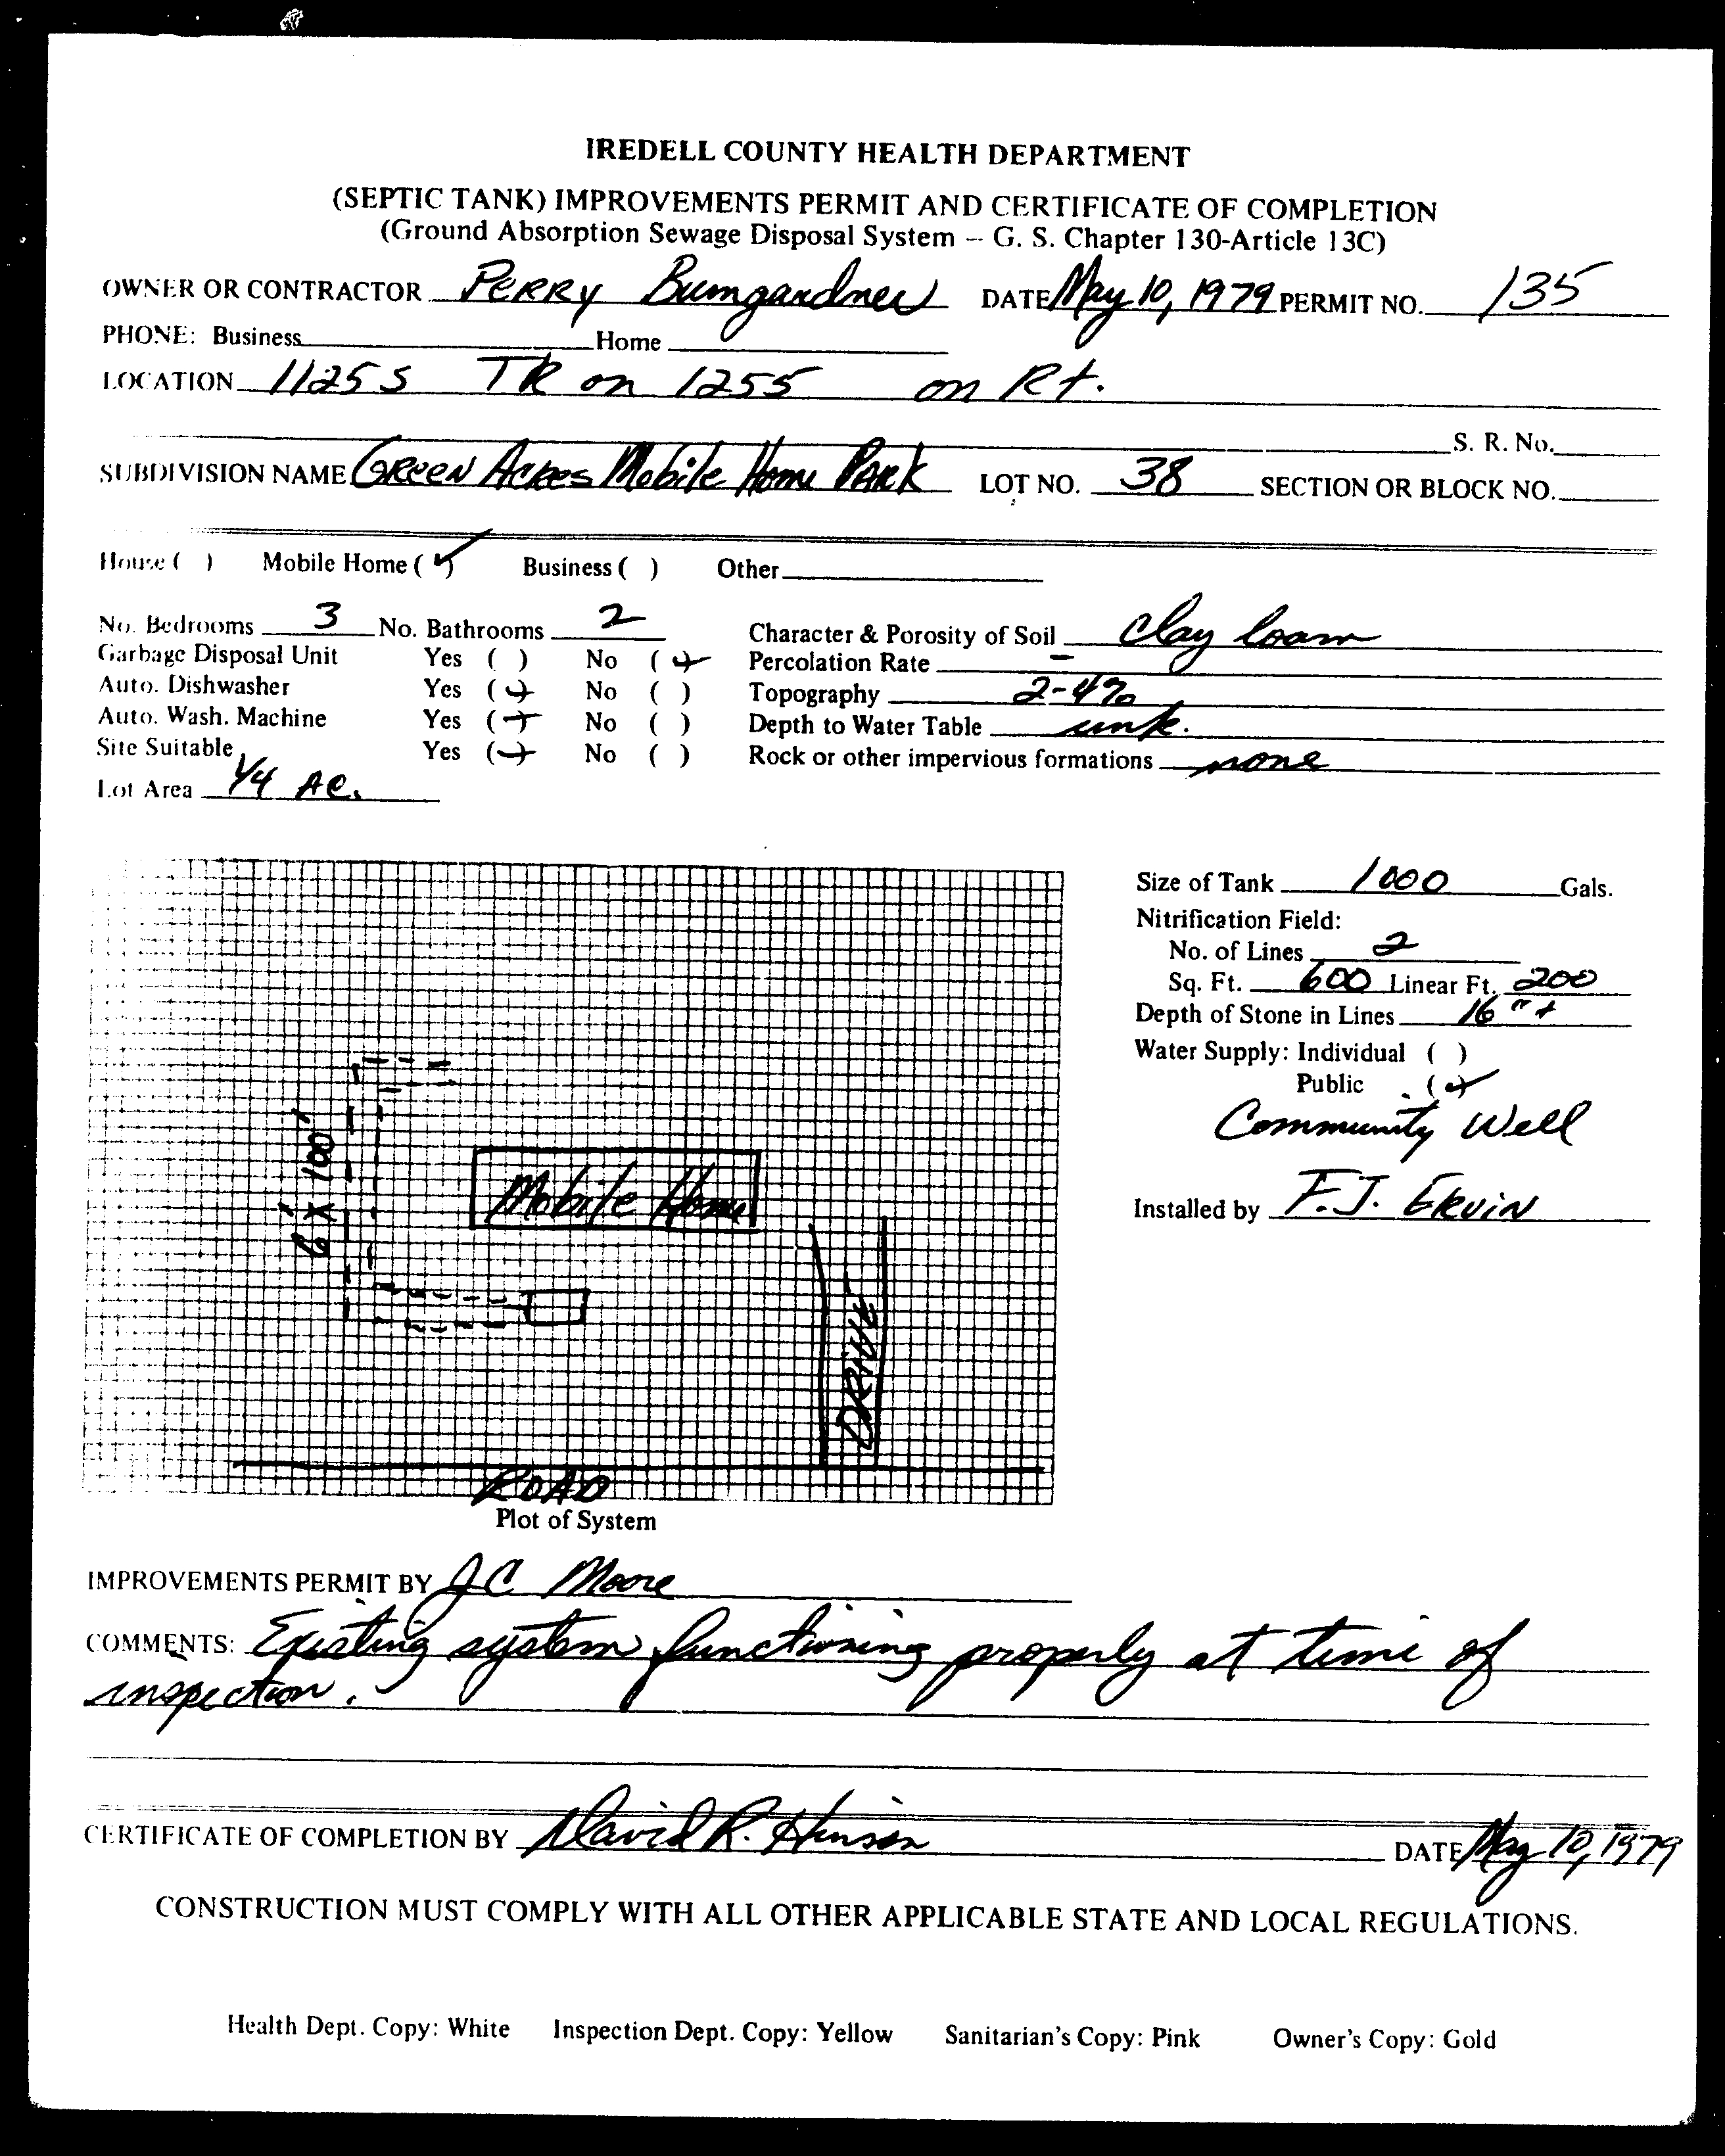 IREDELL COUNTY HEALTH DEPARTMENT
(SEPTIC TANK) IMPROVEMENTS PERMIT AND CERTIFICATE OF COMPLETION
(Ground Absorption Sewage Disposal System -- G. S. Chapter 130-Article 13C)
OWNER OR CONTRACTOR PERRY Bumgardner DATE May 10, 1979 PERMIT NO. 135
PHONE: Business Home
LOCATION 1125 S TR on 1255 on Rt.
S. R. No.
SUBDIVISION NAME GREEN ACRES Mobile Home PARK LOT NO. 38 SECTION OR BLOCK NO.
House ( ) Mobile Home (✓) Business ( ) Other
No. Bedrooms 3 No. Bathrooms 2 Character & Porosity of Soil Clay loam
Garbage Disposal Unit Yes ( ) No (✓) Percolation Rate –
Auto. Dishwasher Yes (✓) No ( ) Topography 2-4%
Auto. Wash. Machine Yes (✓) No ( ) Depth to Water Table unk.
Site Suitable Yes (✓) No ( ) Rock or other impervious formations none
Lot Area 1/4 AC.
Size of Tank 1000 Gals.
Nitrification Field:
No. of Lines 2
Sq. Ft. 600 Linear Ft. 200
Depth of Stone in Lines 16"+
Water Supply: Individual ( )
Public (✓)
Community Well
Installed by F.J. ERVIN
6' X 100'
Mobile Home
DRIVE
ROAD
Plot of System
IMPROVEMENTS PERMIT BY J C Moore
COMMENTS: Existing system functioning properly at time of
inspection.
CERTIFICATE OF COMPLETION BY David R. Hinson DATE May 10, 1979
CONSTRUCTION MUST COMPLY WITH ALL OTHER APPLICABLE STATE AND LOCAL REGULATIONS.
Health Dept. Copy: White Inspection Dept. Copy: Yellow Sanitarian's Copy: Pink Owner's Copy: Gold